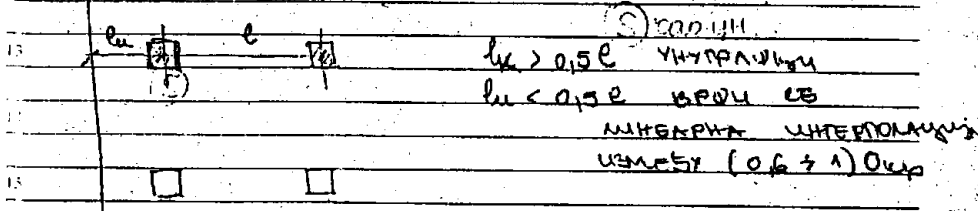 lк l
lк > 0,5 l унутрашњи
lк < 0,5 l врши се
линеарна интерполација
између (0,6 ÷ 1)